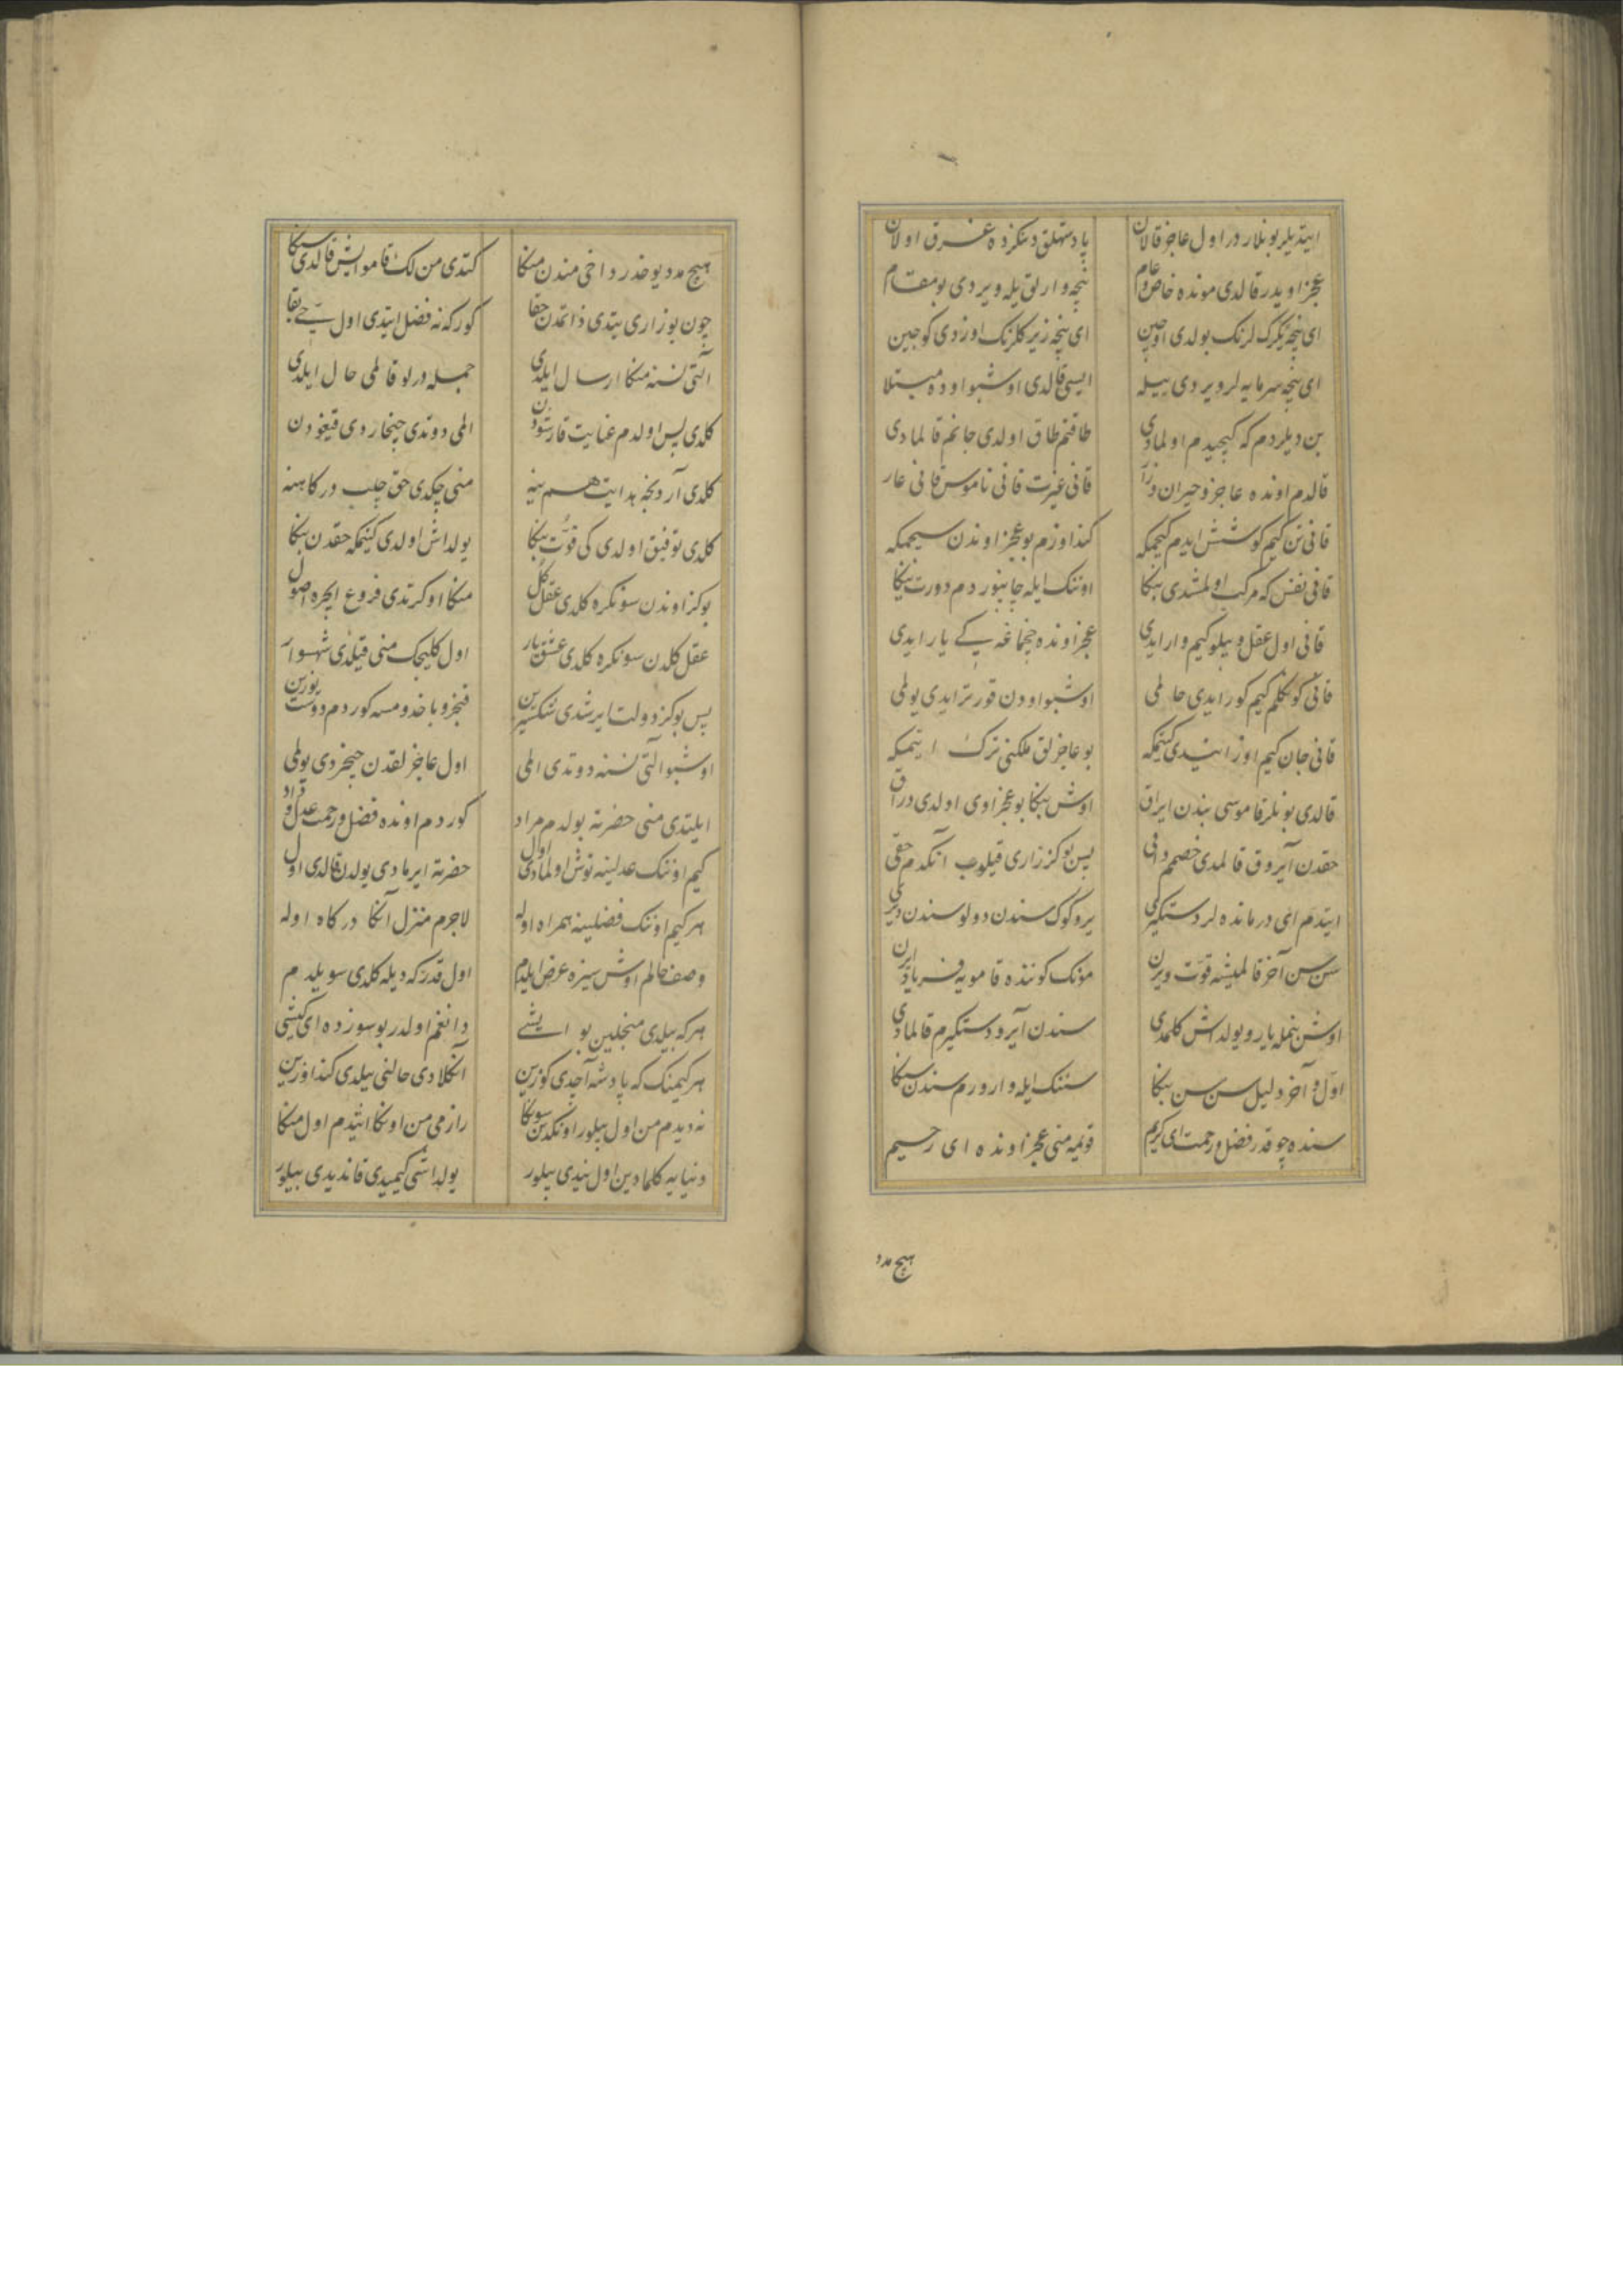 ایتدیلر بونلار در اول عاجز قالان پادشهلق دنکزده غرق اولان
عجز اویدر قالدی مونده خاص و عام نیجه وارلق یله ویردی بو مقام
ای نیجه کرک لرنک بولدی اوجین ای نیجه زیر کلرنک اوزدی کوجین
ای نیجه سرمایه لر ویردی ییله ایسی قالدی اوشبو اوده مبتلا
بن دیلردم که کیجیدم اولمادی طاقتم طاق اولدی جانم قالمادی
قالدم اونده عاجز و حیران و زار قانی غیرت قانی ناموس قانی عار
قانی تن کیم کوشش ایدم کیجمکه کندا وزم بو عجز اوندن سیجمکه
قانی نفس که مرکب اولمشدی بنکا اوننک ایله چابنوردم دورت ینکا
قانی اول عقل و بیلو کیم وار ایدی عجز اونده چیخماغه پی یار ایدی
قانی کونکلم کیم کورر ایدی حالمی اوشبو اودن قورتر ایدی یولمی
قانی جان کیم اوز ایتیدی کیتمکه بو عاجز لق ملکنی ترک ایتمکه
قالدی بونلر قاموسی بندن ایراق اوش بنکا بو عجز اوی اولدی دراق
حقدن آیروق قالمدی خصمم داقی پس بو کز زاری قیلوب آنکدم حقی
ایتدم ای درمانده لر دستکیری یر و کوک سندن دولو سندن دیری
سن سن آخر قالمیشه قوت ویرن مونک کوننده قامویه فریاد ایرن
اوش بنمله یار و یولداش کلمدی سندن آیرو دستکیرم قالمادی
اول و آخر دلیل سن سن بنکا سننک ایله وارورم سندن سنکا
سنده چوقدر فضل و رحمت ای کریم قویمه منی عجز اونده ای رحیم
هیچ مدد
هیچ مدد یوخدر داخی مندن منکا کتدی من لک قامو ایش قالدی سنکا
چون بو زاری یتدی ذاتمدن حقا کورکه نه فضل ایتدی اول حی بقا
آلتی نسنه منکا ارسال ایلدی جمله درلو قالمی حال ایلدی
کلدی پس اولدم عنایت قارشودن المی دوتدی چیخاردی قیغودن
کلدی آردنجه هدایت هم ینه منی چکدی حق چلب درکاهنه
کلدی توفیق اولدی کی قوت بنکا یولداش اولدی کیتمکه حقدن ینکا
بوکز اوندن سونکره کلدی عقل کل منکا اوکرتدی فروع ایچره اصول
عقل کلدن سونکره کلدی عشق یار اول کلیجک منی قیلدی شهسوار
پس بوکز دولت ایرشدی شکسزین قنجرو باخدومسه کوردم دوست یوزین
اوشبو آلتی نسنه دوتدی المی اول عاجز لقدن چیخردی یولمی
ایلتدی منی حضرته بولدم مراد کوردم اونده فضل و رحمت عدل و داد
کیم اوننک عدلینه توش اولمادی اول حضرته ایرمادی یولدن قالدی اول
هرکیم اوننک فضلینه همراه اوله لاجرم منزل آنکا درکاه اوله
وصف حالم اوش سیزه عرض ایلدم اول قدر که دیله کلدی سویلدم
هرکه بیلدی منجلین بو ایشی دانغم اولدر بو سوزده ای کیشی
هرکیمنک که پادشه آجدی کوزین آنکلادی حالنی بیلدی کندا وزین
نه دیدم من اول بیلور اونکدن سونکا رازمی من اونکا ایتدم اول منکا
دنیایه کلمادین اول نیدی بیلور یولداشی کیمیدی قاندیدی بیلور